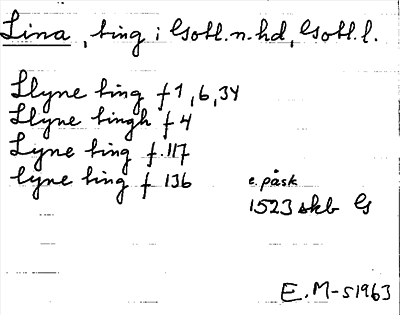 Lina, ting i Gotl. n. hd, Gotl. l.
Llyne ting f 1, 6, 34
Llyne tingh f 4
Lyne ting f. 117
lyne ting f 136
e. påsk
1523 skb G
E. M-s 1963